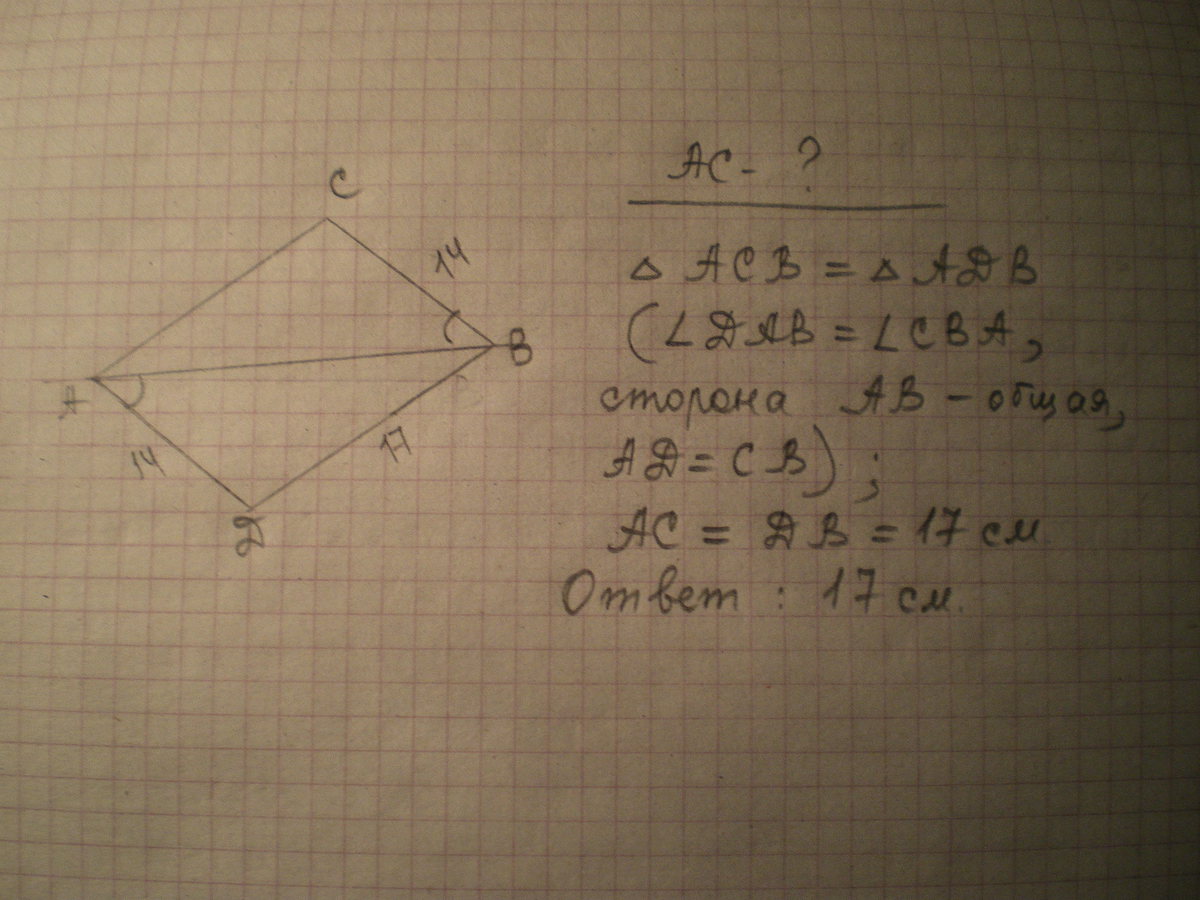 C
14
B
A
14
17
D
AC - ?
△ ACB = △ ADB
(∠DAB = ∠CBA,
сторона AB - общая,
AD = CB) ;
AC = DB = 17 см.
Ответ : 17 см.